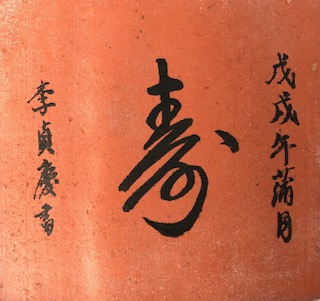 戊戌年蒲月
寿
李貞慶書